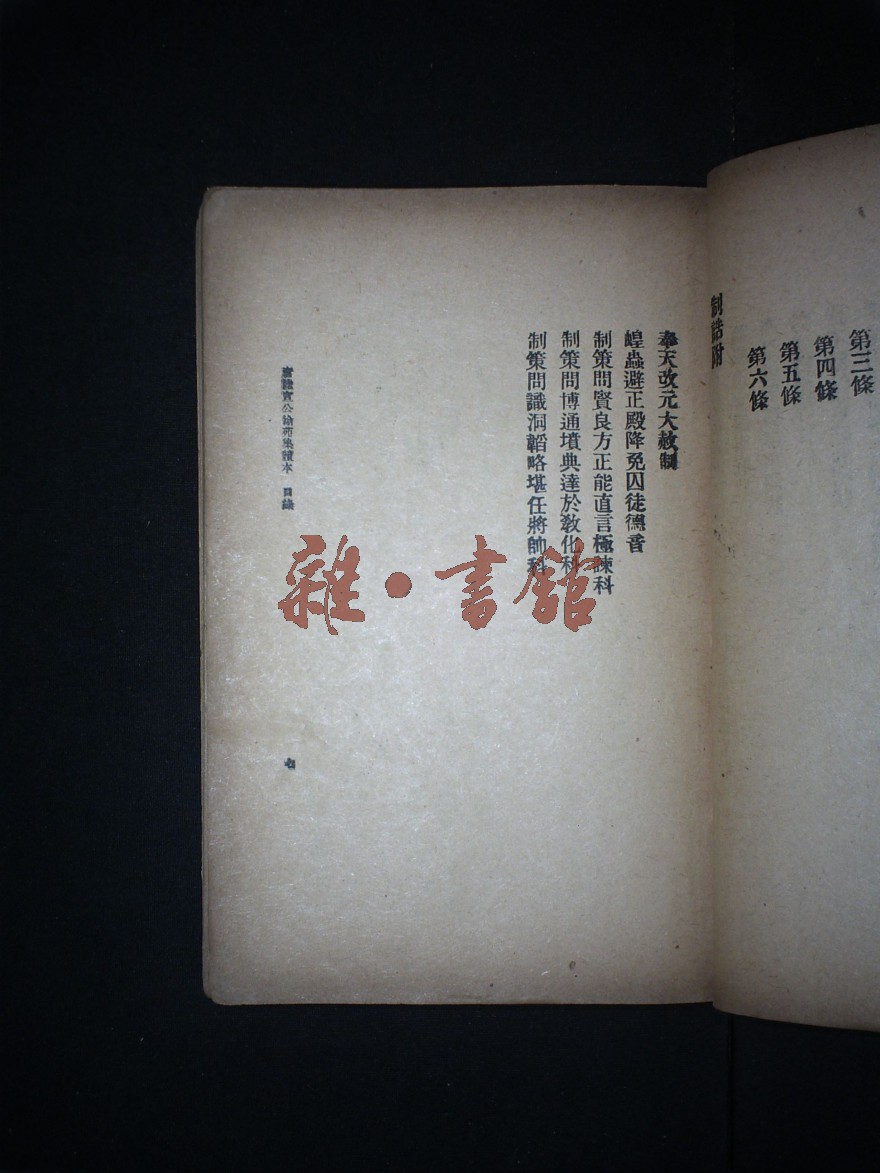 第三條
第四條
第五條
第六條
制誥附
奉天改元大赦制
蝗蟲避正殿降免囚徒德音
制策問賢良方正能直言極諫科
制策問博通墳典達於敎化科
制策問識洞韜略堪任將帥科
唐陸宣公翰苑集讀本　目錄
七
雜·書館